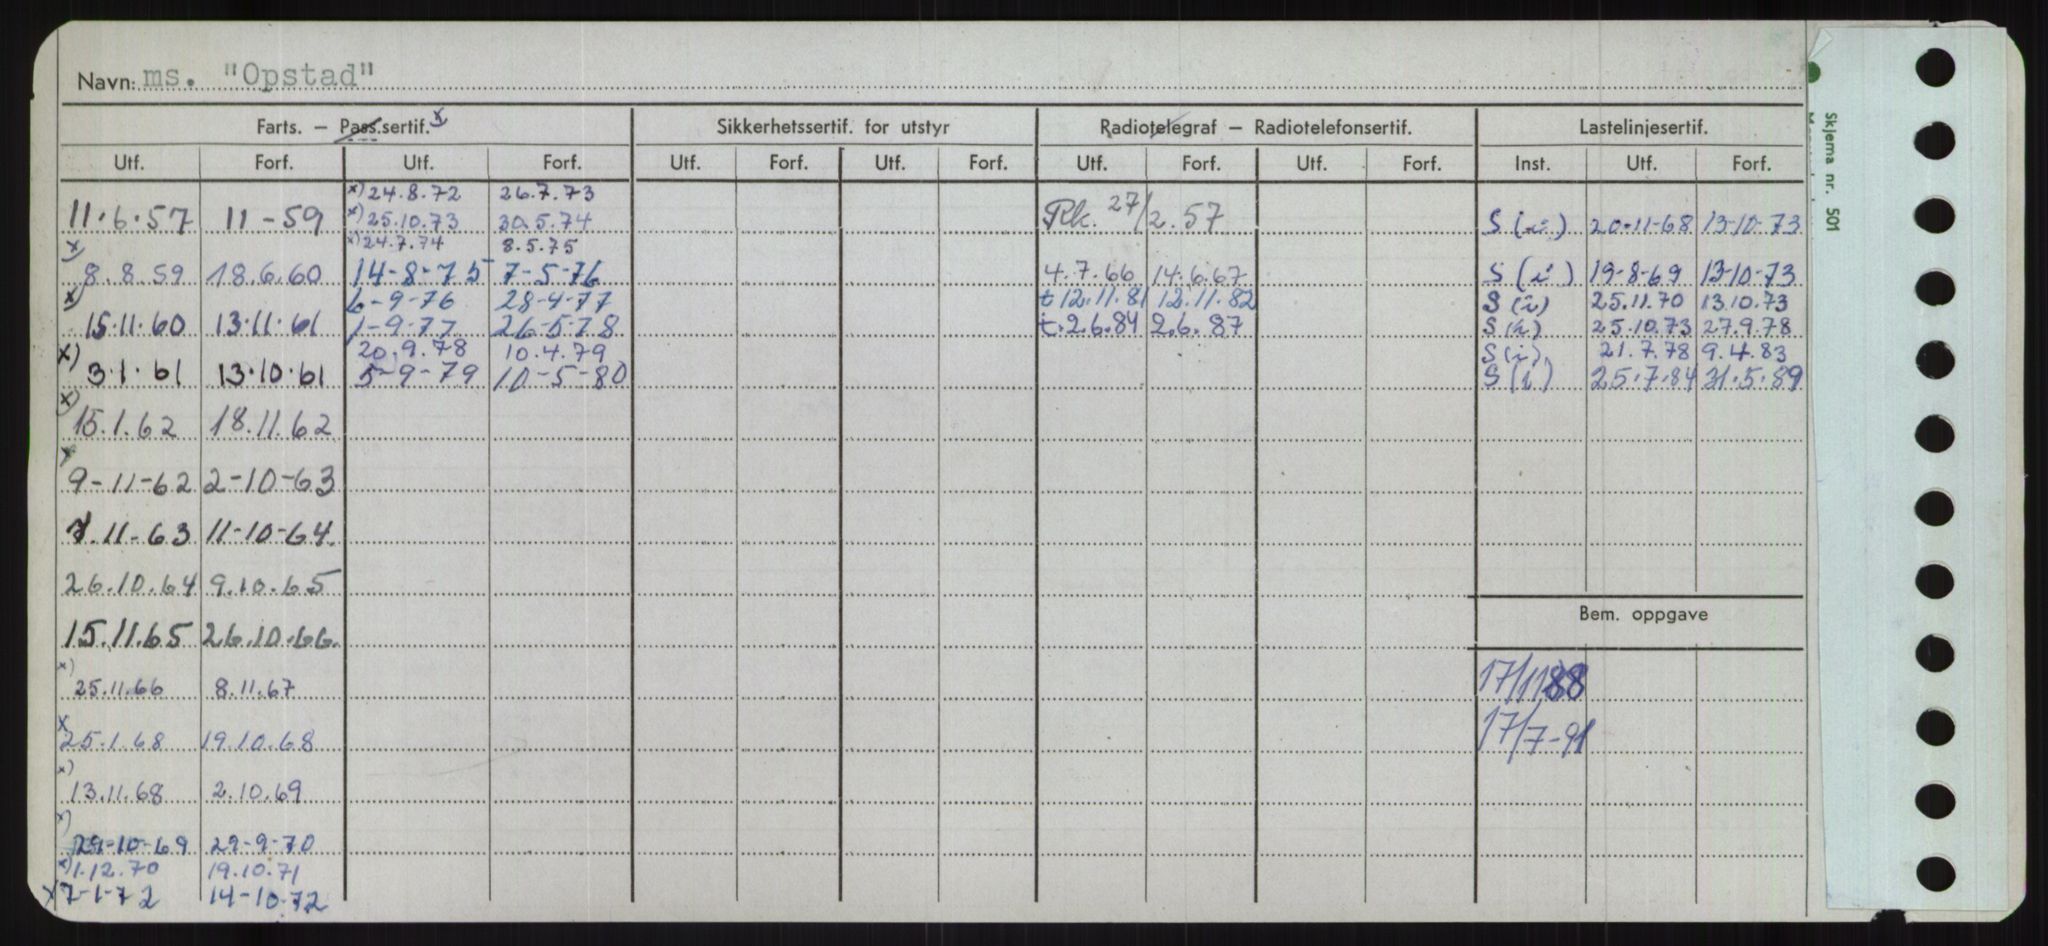 Navn: ms. "Opstad"
Farts. — Pass.sertif. x) Sikkerhetssertif. for utstyr Radiotelegraf — Radiotelefonsertif. Lastelinjesertif.
Utf. Forf. Utf. Forf. Utf. Forf. Utf. Forf. Utf. Forf. Utf. Forf. Inst. Utf. Forf.
x) 24.8.72 26.7.73
11.6.57 11-59 x) 25.10.73 30.5.74 Rk. 27/2.57 S (i) 20-11-68 13-10-73
x) 24.7.74 8.5.75
x) 8.8.59 18.6.60 14-8-75 7-5-76 4.7.66 14.6.67 S (i) 19-8-69 13-10-73
6-9-76 28-4-77 t 12.11.81 12.11.82 S (i) 25.11.70 13.10.73
x) 15.11.60 13.11.61 1-9-77 26-5-78 t. 2.6.84 2.6.87 S (i) 25.10.73 27.9.78
20.9.78 10.4.79 S (i) 21.7.78 9.4.83
x) 3.1.61 13.10.61 5-9-79 10-5-80 S (i) 25.7.84 31.5.89
x) 15.1.62 18.11.62
x 9-11-62 2-10-63
11-63 11-10-64
26.10.64 9.10.65
15.11.65 26.10.66
Bem. oppgave
x) 25.11.66 8.11.67 17/11 88
x 25.1.68 19.10.68 17/7-91
x) 13.11.68 2.10.69
x) 29-10-69 29-9-70
x) 1.12.70 19.10.71
x 7-1-72 14-10-72
Skjema nr. 501